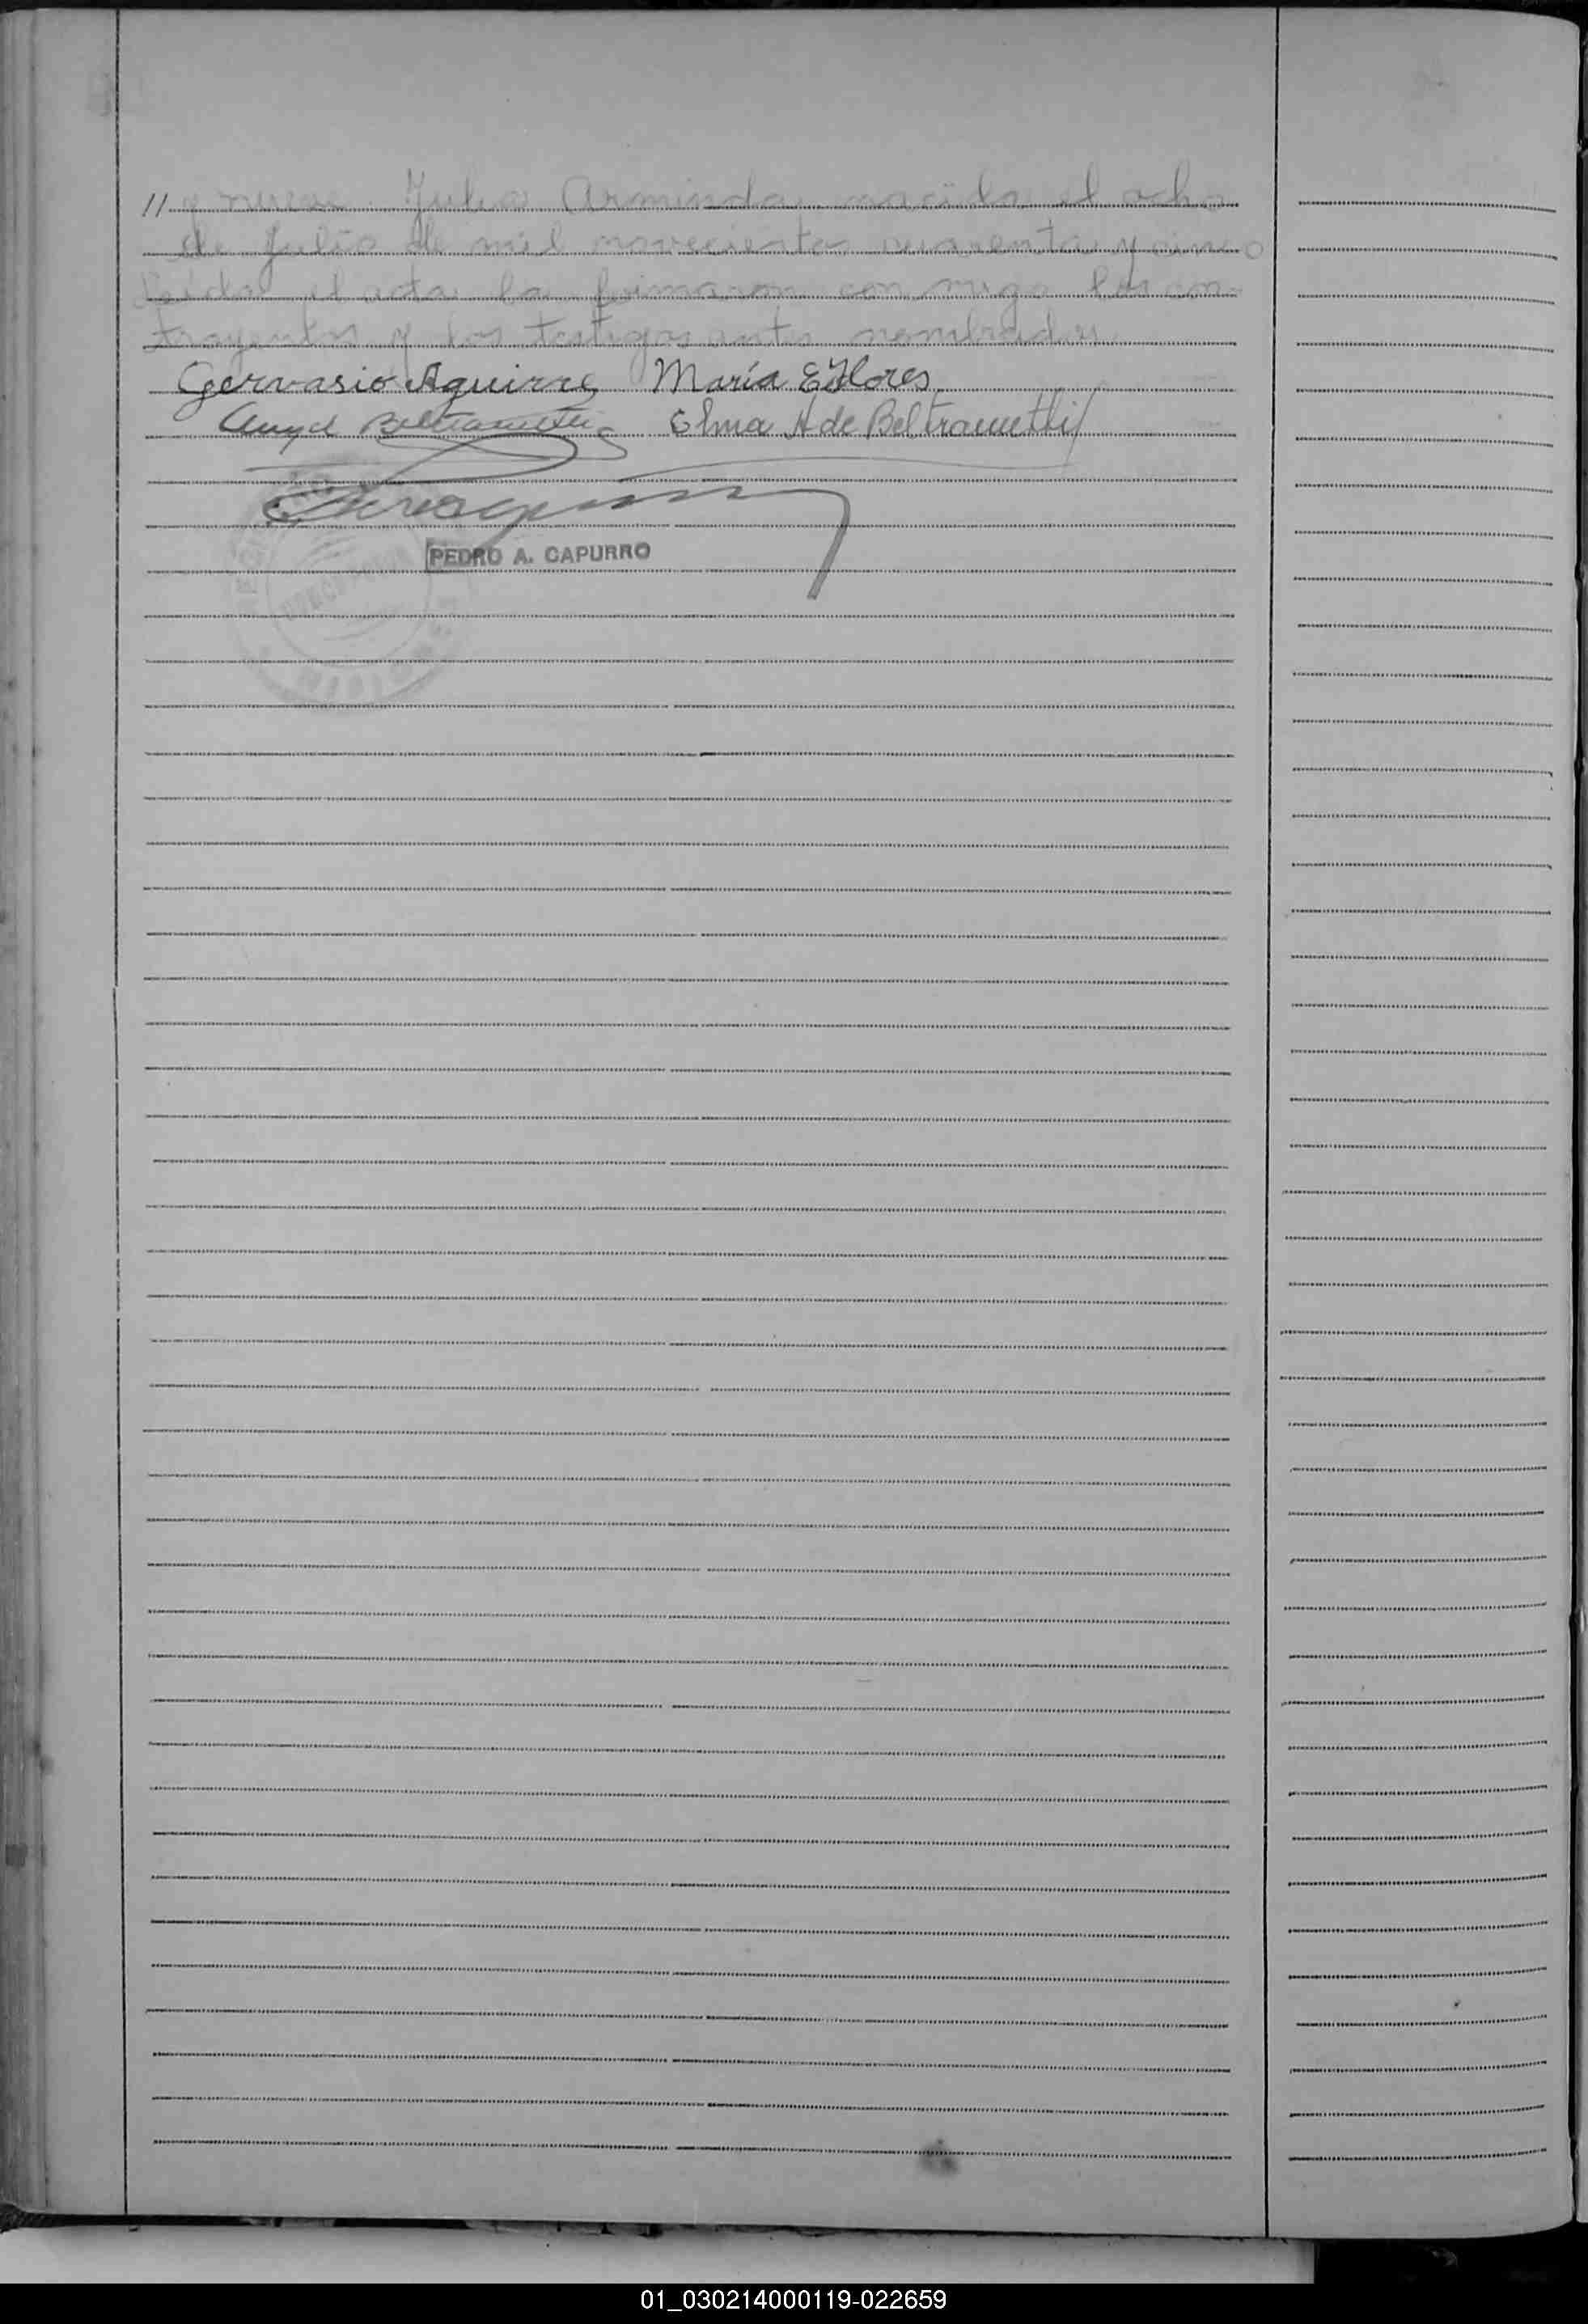 // y nueve. Julia Arminda, nacida el ocho
de Julio de mil novecientos cuarenta y cinco
Leida el acta la firmaron con migo los con-
trayentes y los testigos antes nombrados.
Gervasio Aguirre María E Flores
Angel Beltrametti Elma H de Beltrametti
PEDRO A. CAPURRO
01_030214000119-022659